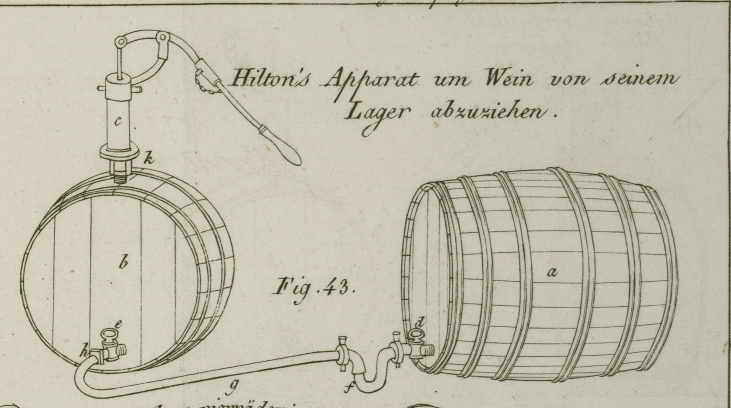 Hilton's Apparat um Wein von seinem
Lager abzuziehen.
c
k
b
a
Fig. 43.
e
d
h
g
f